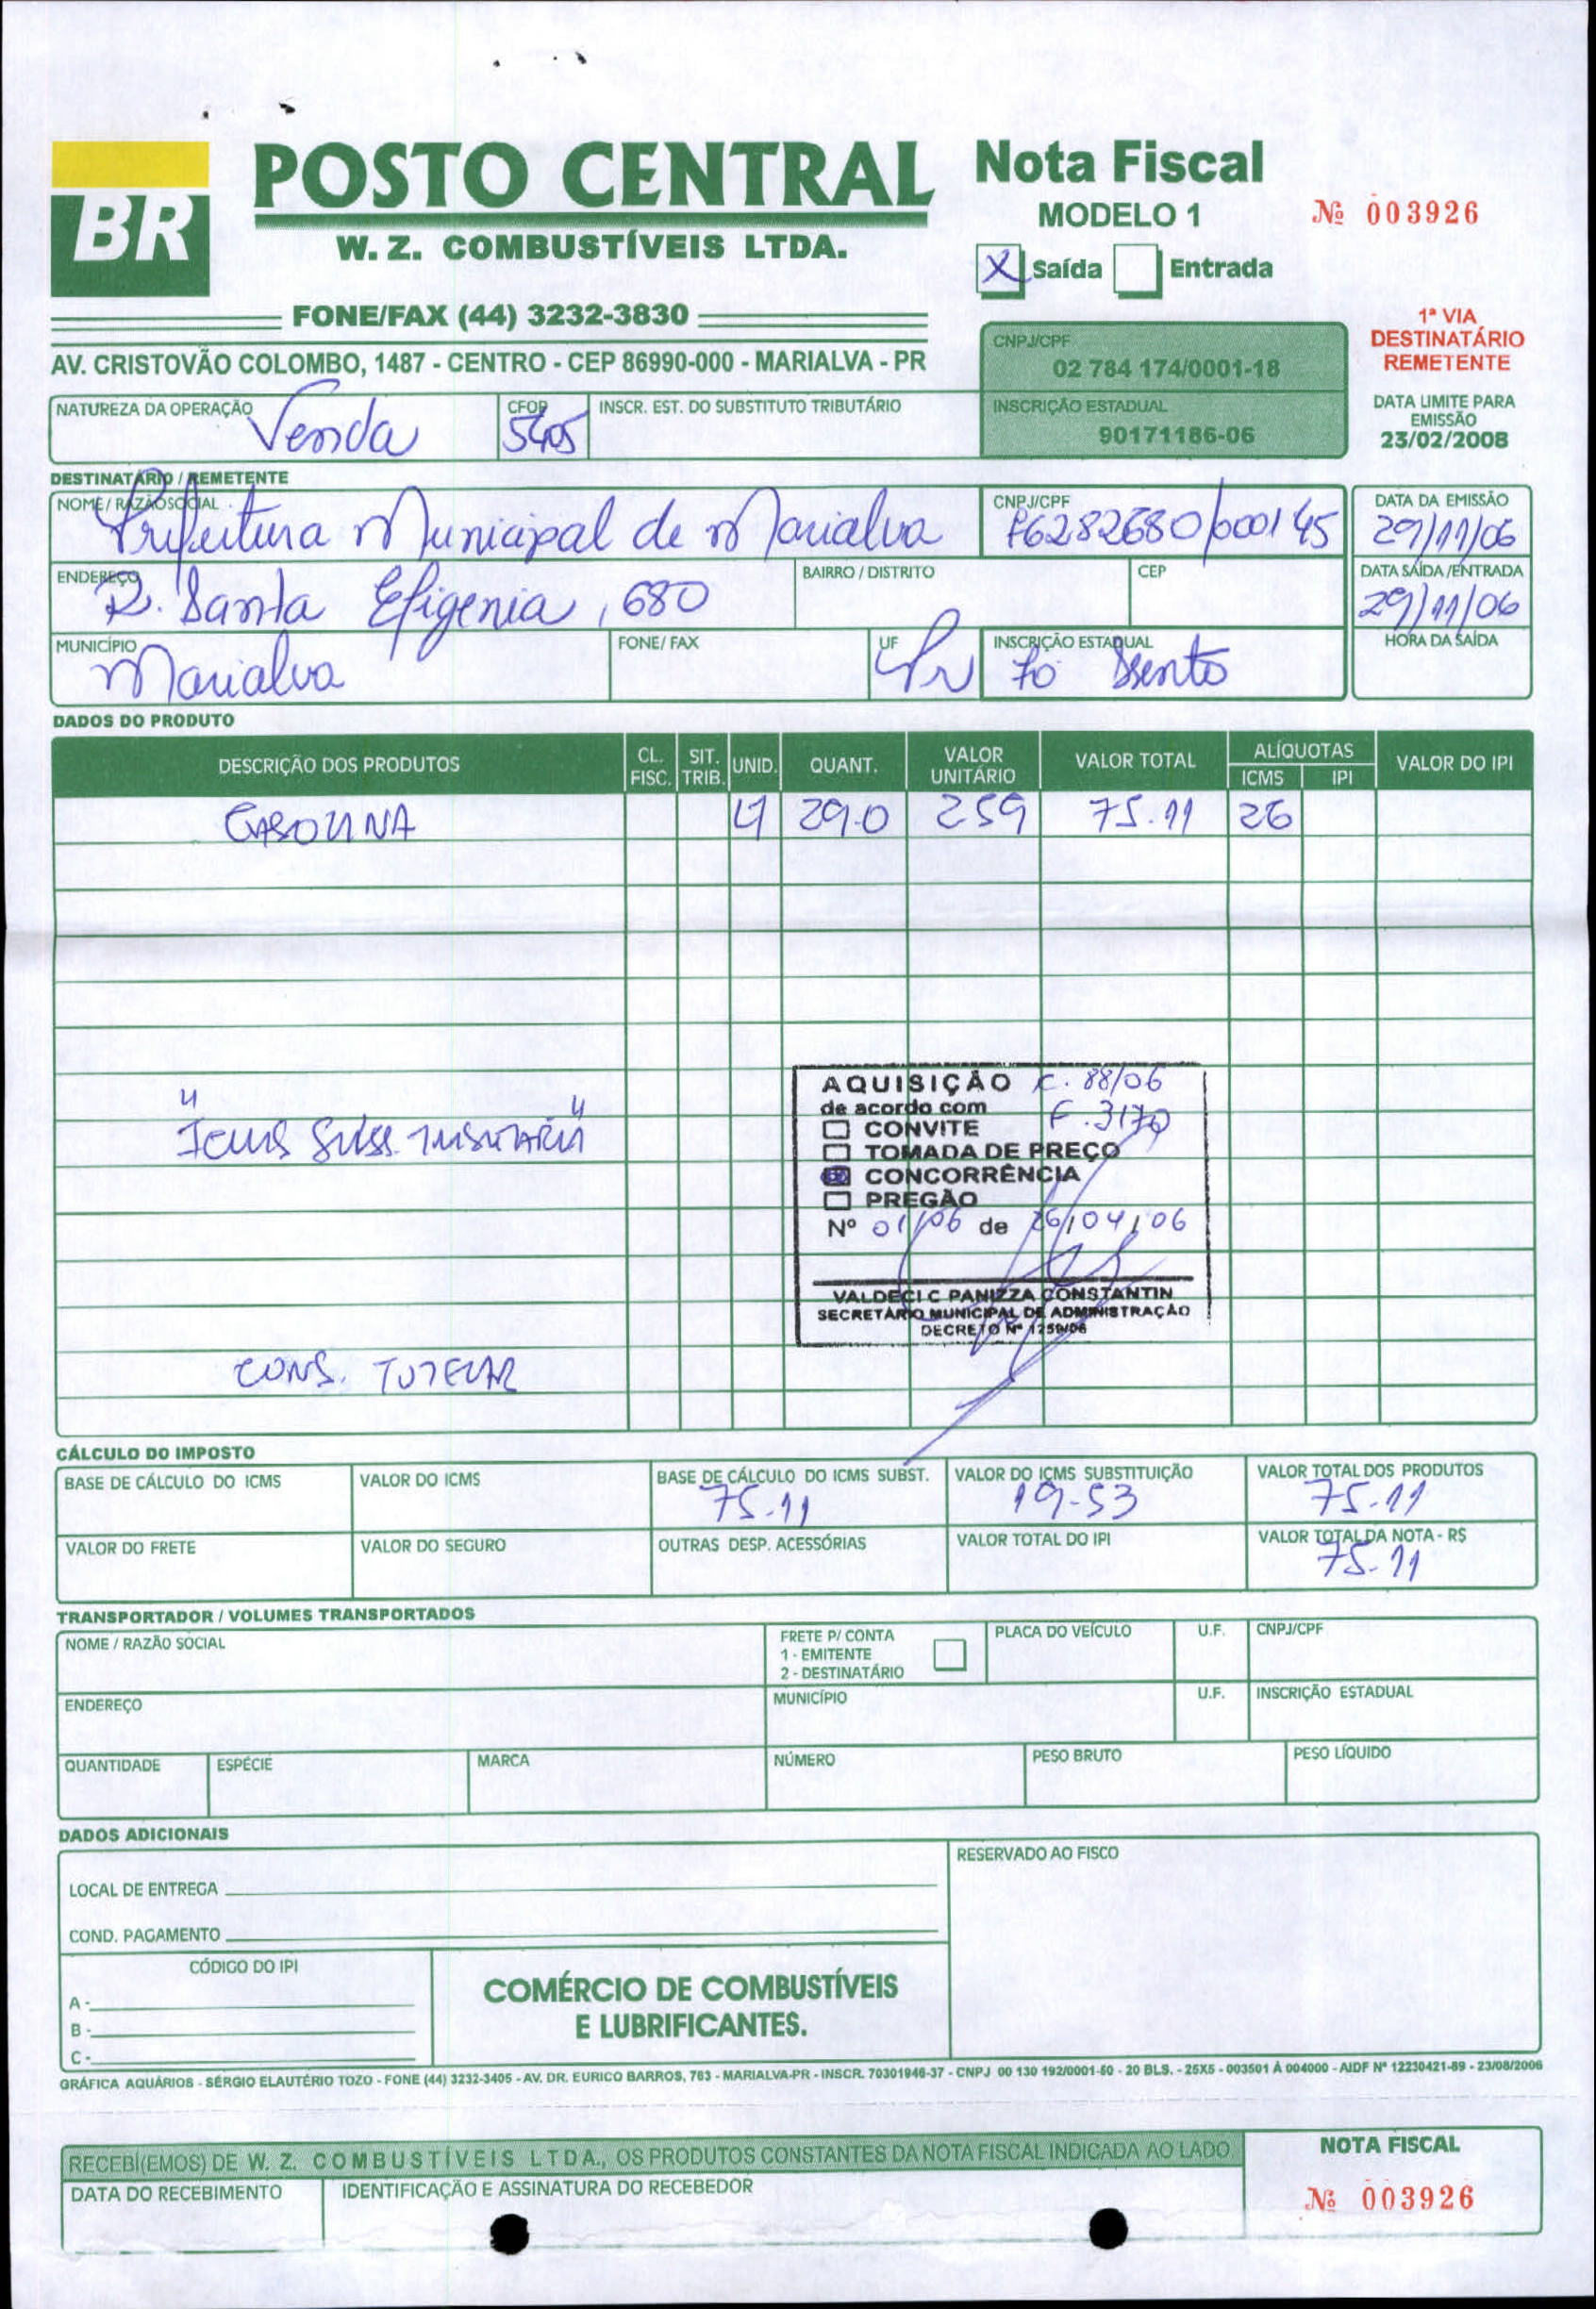 BR
POSTO CENTRAL
W. Z. COMBUSTÍVEIS LTDA.
FONE/FAX (44) 3232-3830
AV. CRISTOVÃO COLOMBO, 1487 - CENTRO - CEP 86990-000 - MARIALVA - PR
Nota Fiscal
MODELO 1
Nº 003926
X Saída Entrada
CNPJ/CPF
02 784 174/0001-18
INSCRIÇÃO ESTADUAL
90171186-06
1ª VIA
DESTINATÁRIO
REMETENTE
DATA LIMITE PARA
EMISSÃO
23/02/2008
NATUREZA DA OPERAÇÃO Venda CFOP 5405 INSCR. EST. DO SUBSTITUTO TRIBUTÁRIO
DESTINATÁRIO / REMETENTE
NOME / RAZÃO SOCIAL Prefeitura Municipal de Marialva CNPJ/CPF 76282680/000145 DATA DA EMISSÃO 29/11/06
ENDEREÇO R. Santa Efigenia, 680 BAIRRO / DISTRITO CEP DATA SAÍDA /ENTRADA 29/11/06
MUNICÍPIO Marialva FONE/ FAX UF Pr INSCRIÇÃO ESTADUAL Isento HORA DA SAÍDA
DADOS DO PRODUTO
DESCRIÇÃO DOS PRODUTOS CL. FISC. SIT. TRIB. UNID. QUANT. VALOR UNITÁRIO VALOR TOTAL ALÍQUOTAS ICMS IPI VALOR DO IPI
GASOLINA 29.0 259 75.11 26
AQUISIÇÃO C. 88/06
de acordo com F. 3170
CONVITE
TOMADA DE PREÇO
CONCORRÊNCIA
PREGÃO
Nº 01/06 de 26/04/06
VALDECI C PANIZZA CONSTANTIN
SECRETÁRIO MUNICIPAL DE ADMINISTRAÇÃO
DECRETO Nº 1259/06
"ICMS SUBS. TRIBUTARIA"
CONS. TUTELAR
CÁLCULO DO IMPOSTO
BASE DE CÁLCULO DO ICMS VALOR DO ICMS BASE DE CÁLCULO DO ICMS SUBST. VALOR DO ICMS SUBSTITUIÇÃO VALOR TOTAL DOS PRODUTOS
75.11 19-53 75.11
VALOR DO FRETE VALOR DO SEGURO OUTRAS DESP. ACESSÓRIAS VALOR TOTAL DO IPI VALOR TOTAL DA NOTA - R$
75.11
TRANSPORTADOR / VOLUMES TRANSPORTADOS
NOME / RAZÃO SOCIAL FRETE P/ CONTA PLACA DO VEÍCULO U.F. CNPJ/CPF
1 - EMITENTE
2 - DESTINATÁRIO
ENDEREÇO MUNICÍPIO U.F. INSCRIÇÃO ESTADUAL
QUANTIDADE ESPÉCIE MARCA NÚMERO PESO BRUTO PESO LÍQUIDO
DADOS ADICIONAIS
LOCAL DE ENTREGA
COND. PAGAMENTO
RESERVADO AO FISCO
CÓDIGO DO IPI
A -
B -
C -
COMÉRCIO DE COMBUSTÍVEIS
E LUBRIFICANTES.
GRÁFICA AQUÁRIOS - SÉRGIO ELAUTÉRIO TOZO - FONE (44) 3232-3405 - AV. DR. EURICO BARROS, 783 - MARIALVA-PR - INSCR. 70301946-37 - CNPJ 00 130 192/0001-60 - 20 BLS. - 25X5 - 003501 À 004000 - AIDF Nº 12230421-89 - 23/08/2006
RECEBI(EMOS) DE W. Z. COMBUSTÍVEIS LTDA., OS PRODUTOS CONSTANTES DA NOTA FISCAL INDICADA AO LADO
DATA DO RECEBIMENTO IDENTIFICAÇÃO E ASSINATURA DO RECEBEDOR
NOTA FISCAL
Nº 003926